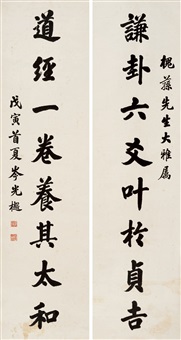 槐蓀先生大雅属
謙卦六爻叶於貞吉
道經一卷養其太和
戊寅首夏岑光樾